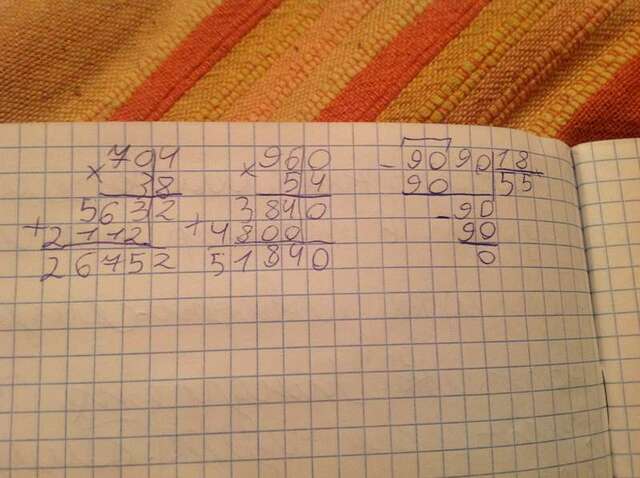 × 704
38
+ 5632
2112
26752
× 960
54
+ 3840
4800
51840
- 9090 18
90 55
- 90
90
0